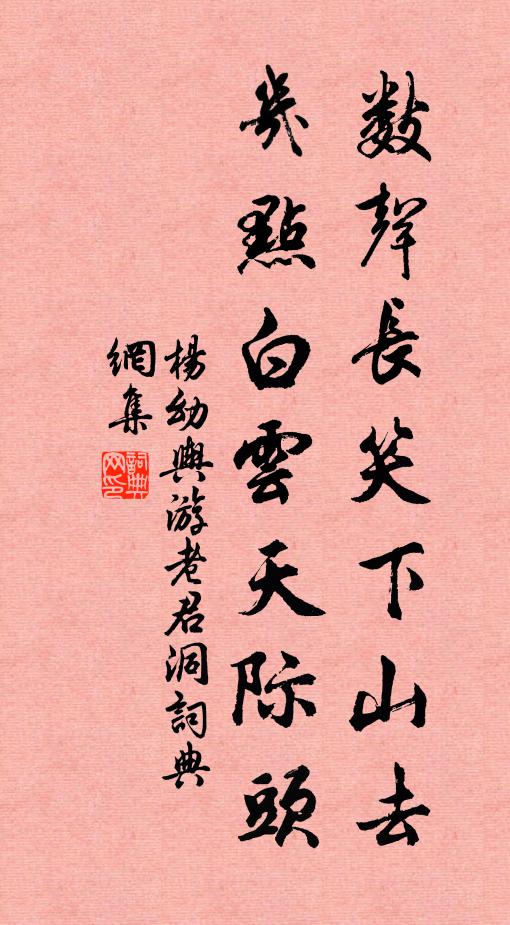 數聲長笑下山去
幾點白雲天际頭
楊幼輿游老君洞詞典
網集
詞典網印